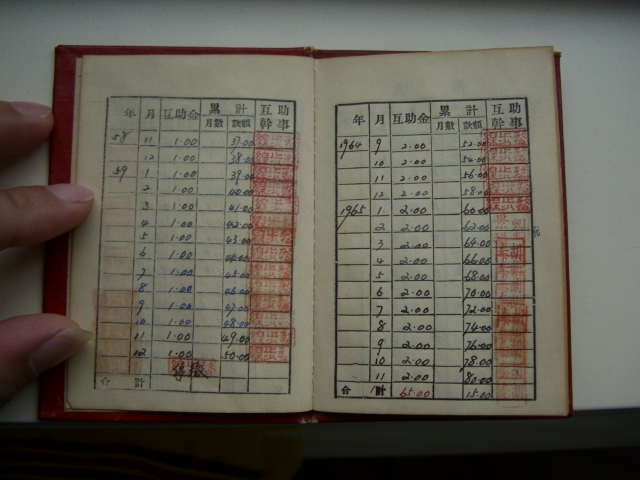 年 月 互助金 累計 月數 款額 互助幹事
58 11 1.00 37.00
12 1.00 38.00
59 1 1.00 39.00
2 1.00 40.00
3 1.00 41.00
4 1.00 42.00
5 1.00 43.00
6 1.00 44.00
7 1.00 45.00
8 1.00 46.00
9 1.00 47.00
10 1.00 48.00
11 1.00 49.00
12 1.00 50.00
停繳
合計
年 月 互助金 累計 月數 款額 互助幹事
1964 9 2.00 52.00
10 2.00 54.00
11 2.00 56.00
12 2.00 58.00
1965 1 2.00 60.00
2 2.00 62.00
3 2.00 64.00
4 2.00 66.00
5 2.00 68.00
6 2.00 70.00
7 2.00 72.00
8 2.00 74.00
9 2.00 76.00
10 2.00 78.00
11 2.00 80.00
合計 65.00 15.00